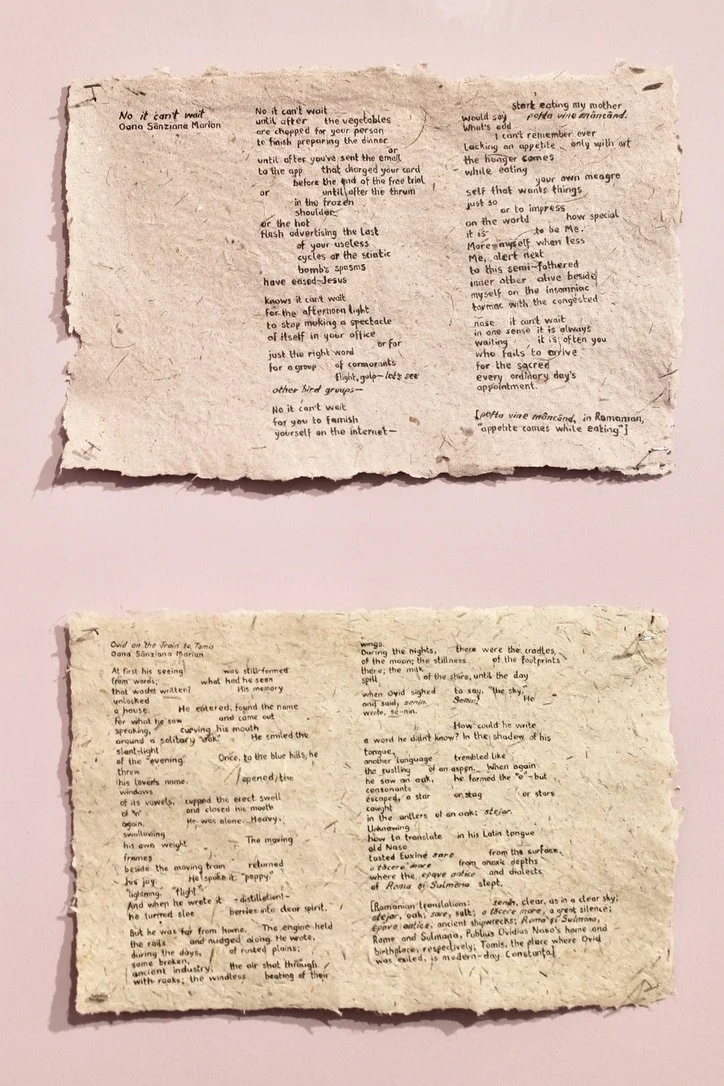 No it can't wait
Oana Sânziana Marian
No it can't wait
until after the vegetables
are chopped for your person
to finish preparing the dinner
or
until after you've sent the email
to the app that charged your card
before the end of the free trial
or until after the thrum
in the frozen
shoulder
or the hot
flash advertising the last
of your useless
cycles or the sciatic
bomb's spasms
have eased—Jesus
knows it can't wait
for the afternoon light
to stop making a spectacle
of itself in your office
or for
just the right word
for a group of cormorants
flight, gulp—let's see
other bird groups—
No it can't wait
for you to famish
yourself on the internet—
Start eating my mother
would say pofta vine mâncând.
What's odd
I can't remember ever
lacking an appetite only with art
the hunger comes
while eating
your own meagre
self that wants things
just so
or to impress
on the world how special
it is to be Me.
More myself when less
Me, alert next
to this semi-fathered
inner other alive beside
myself on the insomniac
tarmac with the congested
nose it can't wait
in one sense it is always
waiting it is often you
who fails to arrive
for the sacred
every ordinary day's
appointment.
[pofta vine mâncând, in Romanian,
"appetite comes while eating"]
Ovid on the Train to Tomis
Oana Sânziana Marian
At first his seeing was still formed
from words; what had he seen
that wasn't written? His memory
unlocked
a house. He entered, found the name
for what he saw and came out
speaking, curving his mouth
around a solitary "oak." He smiled the
slant-light
of the "evening." Once, to the blue hills, he
threw
his lover's name. I opened, the
windows
of its vowels, cupped the erect swell
of "n" and closed his mouth
again. He was alone. Heavy,
swallowing
his own weight. The moving
frames
beside the moving train returned
his joy. He spoke it: "poppy"
"lightning." "flight."
And when he wrote it —distillation!—
he turned sloe berries into clear spirit.
But he was far from home. The engine held
the rails and nudged along. He wrote,
during the days, of rusted plains;
some broken,
ancient industry; the air shot through
with rooks; the windless beating of their
wings.
During the nights, there were the cradles
of the moon; the stillness of the footprints
there; the milk
spill of the stars, until the day
when Ovid sighed to say, "the sky,"
and said, senin. Senin? He
wrote, se-nin.
How could he write
a word he didn't know? In the shadow of his
tongue,
another language trembled like
the rustling of an aspen. When again
he saw an oak, he formed the "o"—but
consonants
escaped, a star or stag or stars
caught
in the antlers of an oak: stejar.
Unknowing
how to translate in his Latin tongue
old Naso
tasted Euxine sare from the surface,
o tăcere mare from anoxic depths
where the epave antice and dialects
of Roma și Sulmona slept.
[Romanian translations: senin, clear, as in a clear sky;
stejar, oak; sare, salt; o tăcere mare, a great silence;
epave antice, ancient shipwrecks; Roma și Sulmona,
Rome and Sulmona, Publius Ovidius Naso's home and
birthplace, respectively; Tomis, the place where Ovid
was exiled, is modern-day Constanța]